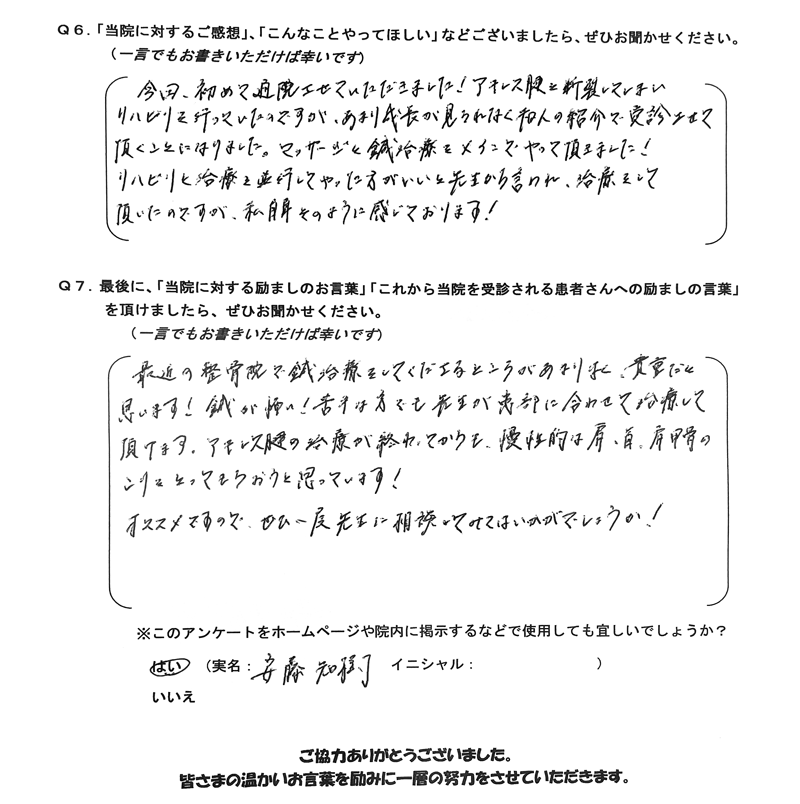 Ｑ６．「当院に対するご感想」、「こんなことやってほしい」などございましたら、ぜひお聞かせください。
（一言でもお書きいただければ幸いです）
今回、初めて通院させていただきました！アキレス腱を断裂してしまい
リハビリを行っていたのですが、あまり成長が見られなく知人の紹介で受診させて
頂くことになりました。マッサージと鍼治療をメインでやって頂きました！
リハビリと治療を並行してやった方がいいと先生から言われ、治療をして
頂いたのですが、私自身そのように感じております！
Ｑ７．最後に、「当院に対する励ましのお言葉」「これから当院を受診される患者さんへの励ましの言葉」
を頂けましたら、ぜひお聞かせください。
（一言でもお書きいただければ幸いです）
最近の整骨院で鍼治療をしてくださるところがあまりなく、貴重だと
思います！鍼が怖い！苦手な方でも先生が患部に合わせて治療して
頂けます。アキレス腱の治療が終わってからも、慢性的な肩、首、肩甲骨の
こりをとってもらおうと思っています！
オススメですので、ぜひ一度先生に相談してみてはいかがでしょうか！
※このアンケートをホームページや院内に掲示するなどで使用しても宜しいでしょうか？
はい （実名：安藤 知樹 イニシャル： ）
いいえ
ご協力ありがとうございました。
皆さまの温かいお言葉を励みに一層の努力をさせていただきます。